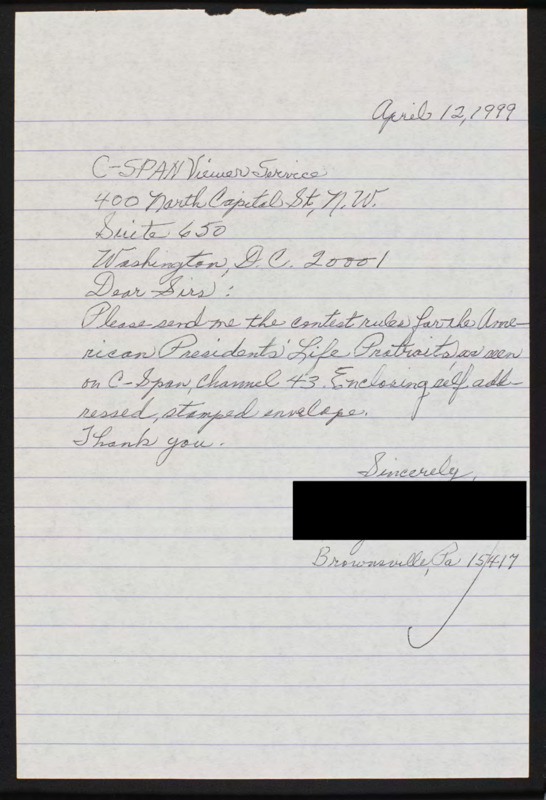 April 12, 1999
C-SPAN Viewer Service
400 North Capital St, N.W.
Suite 650
Washington, D.C. 20001
Dear Sirs:
Please send me the contest rules for the Ame-
rican Presidents' Life Protraits, as seen
on C-Span, channel 43. Enclosing self add-
ressed, stamped envelope.
Thank you.
Sincerely,
Brownsville, Pa 15417